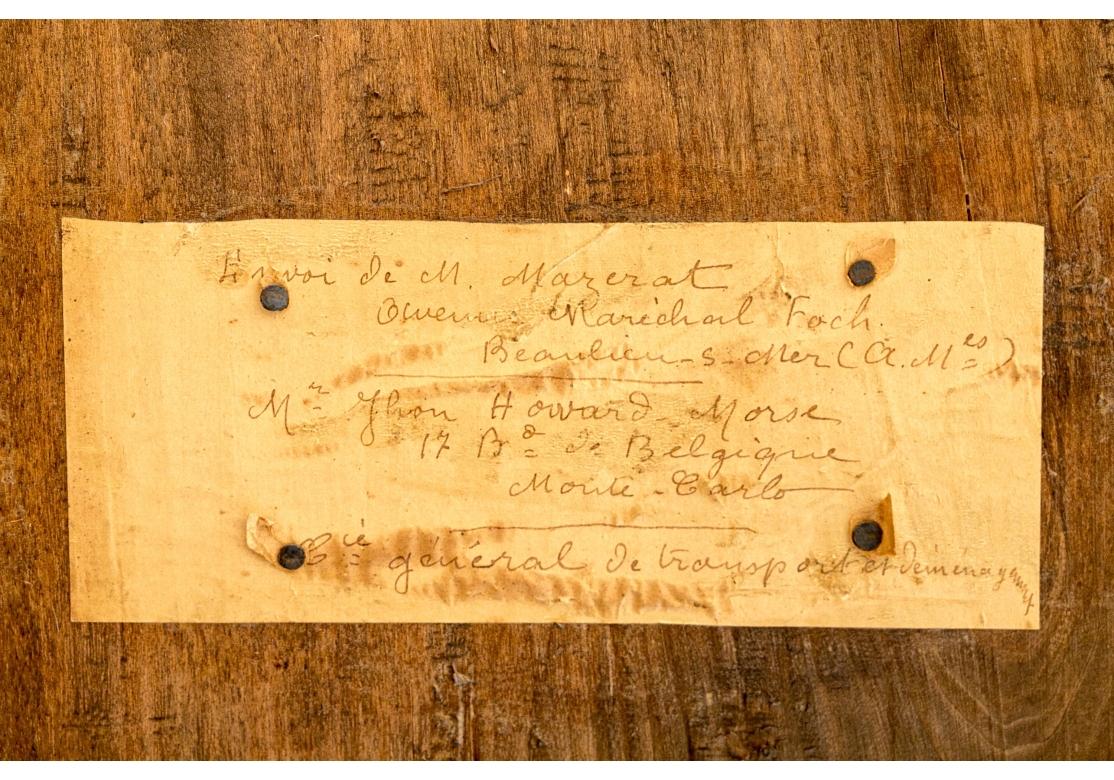 Envoi de M. Mazerat
Maréchal Foch.
Beaulieu-s-Mer (A. Mes)
Mr Jhon Howard Morse
17 Bd de Belgique
Monte-Carlo
Cie général de transport et déménagement